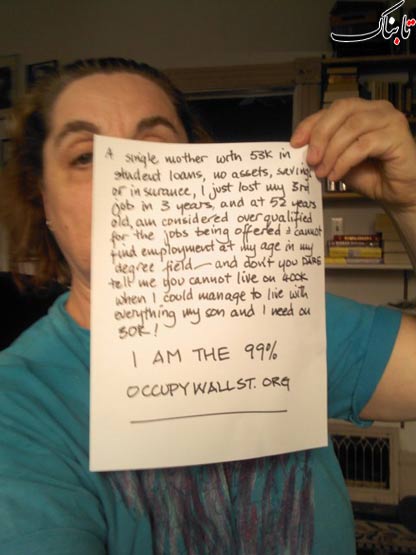 تابناک
A single mother with 53K in
student loans, no assets, savings
or insurance, I just lost my 3rd
job in 3 years, and at 52 years
old, am considered overqualified
for the jobs being offered & cannot
find employment at my age in my
degree field — and don't you DARE
tell me you cannot live on 400K
when I could manage to live with
everything my son and I need on
30K!
I AM THE 99%
OCCUPYWALLST.ORG